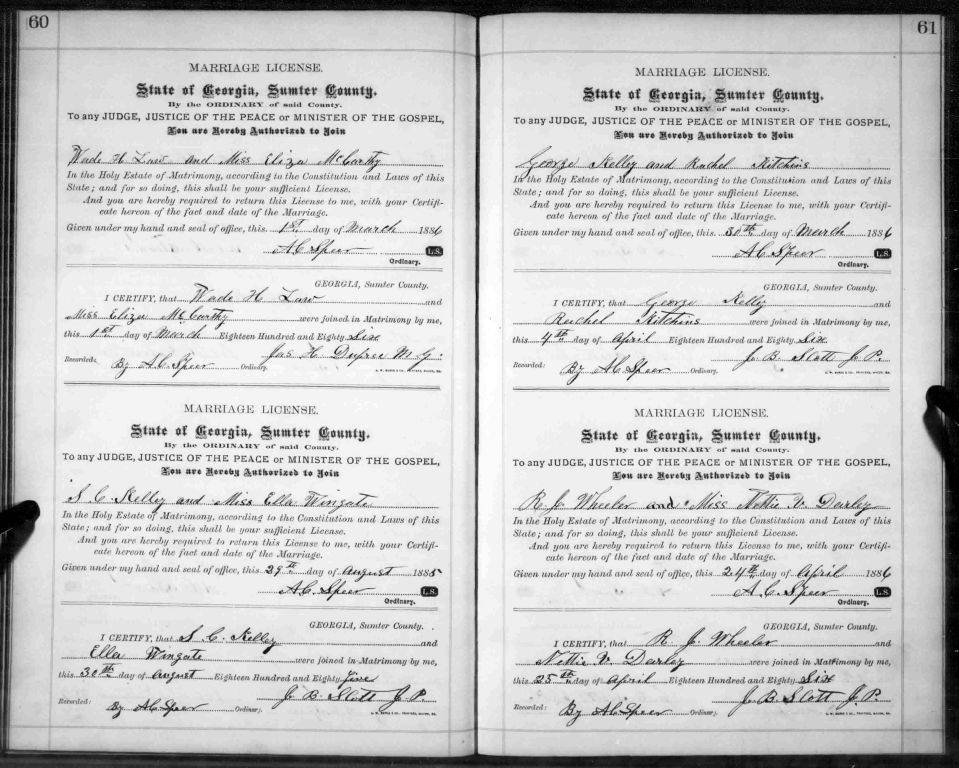 60
MARRIAGE LICENSE.
State of Georgia, Sumter County.
By the ORDINARY of said County.
To any JUDGE, JUSTICE OF THE PEACE or MINISTER OF THE GOSPEL,
You are Hereby Authorized to Join
Wade H Law and Miss Eliza McCarthy
In the Holy Estate of Matrimony, according to the Constitution and Laws of this
State; and for so doing, this shall be your sufficient License.
And you are hereby required to return this License to me, with your Certifi-
cate hereon of the fact and date of the Marriage.
Given under my hand and seal of office, this 1st day of March 1886
A C Speer L.S.
Ordinary.
GEORGIA, Sumter County.
I CERTIFY, that Wade H Law and
Miss Eliza McCarthy were joined in Matrimony by me,
this 1st day of March Eighteen Hundred and Eighty Six
Jas H Dupree M G.
Recorded: By A C Speer Ordinary.
MARRIAGE LICENSE.
State of Georgia, Sumter County.
By the ORDINARY of said County.
To any JUDGE, JUSTICE OF THE PEACE or MINISTER OF THE GOSPEL,
You are Hereby Authorized to Join
S. C. Kelley and Miss Ella Wingate
In the Holy Estate of Matrimony, according to the Constitution and Laws of this
State; and for so doing, this shall be your sufficient License.
And you are hereby required to return this License to me, with your Certifi-
cate hereon of the fact and date of the Marriage.
Given under my hand and seal of office, this 29th day of August 1885
A C. Speer L.S.
Ordinary.
GEORGIA, Sumter County.
I CERTIFY, that S. C. Kelley and
Ella Wingate were joined in Matrimony by me,
this 30th day of August Eighteen Hundred and Eighty five
J. B. Scott J. P.
Recorded: By A C Speer Ordinary.
61
MARRIAGE LICENSE.
State of Georgia, Sumter County.
By the ORDINARY of said County.
To any JUDGE, JUSTICE OF THE PEACE or MINISTER OF THE GOSPEL,
You are Hereby Authorized to Join
George Kelley and Rachel Kitchins
In the Holy Estate of Matrimony, according to the Constitution and Laws of this
State; and for so doing, this shall be your sufficient License.
And you are hereby required to return this License to me, with your Certifi-
cate hereon of the fact and date of the Marriage.
Given under my hand and seal of office, this 30th day of March 1886
A C Speer L.S.
Ordinary.
GEORGIA, Sumter County.
I CERTIFY, that George Kelley and
Rachel Kitchins were joined in Matrimony by me,
this 4th day of April Eighteen Hundred and Eighty Six
J. B. Scott J. P.
Recorded: By A C Speer Ordinary.
MARRIAGE LICENSE.
State of Georgia, Sumter County.
By the ORDINARY of said County.
To any JUDGE, JUSTICE OF THE PEACE or MINISTER OF THE GOSPEL,
You are Hereby Authorized to Join
R J Wheeler and Miss Nettie V. Darley
In the Holy Estate of Matrimony, according to the Constitution and Laws of this
State; and for so doing, this shall be your sufficient License.
And you are hereby required to return this License to me, with your Certifi-
cate hereon of the fact and date of the Marriage.
Given under my hand and seal of office, this 24th day of April 1886
A C. Speer L.S.
Ordinary.
GEORGIA, Sumter County.
I CERTIFY, that R J Wheeler and
Nettie V Darley were joined in Matrimony by me,
this 25th day of April Eighteen Hundred and Eighty Six
J. B. Scott J. P.
Recorded: By A C Speer Ordinary.